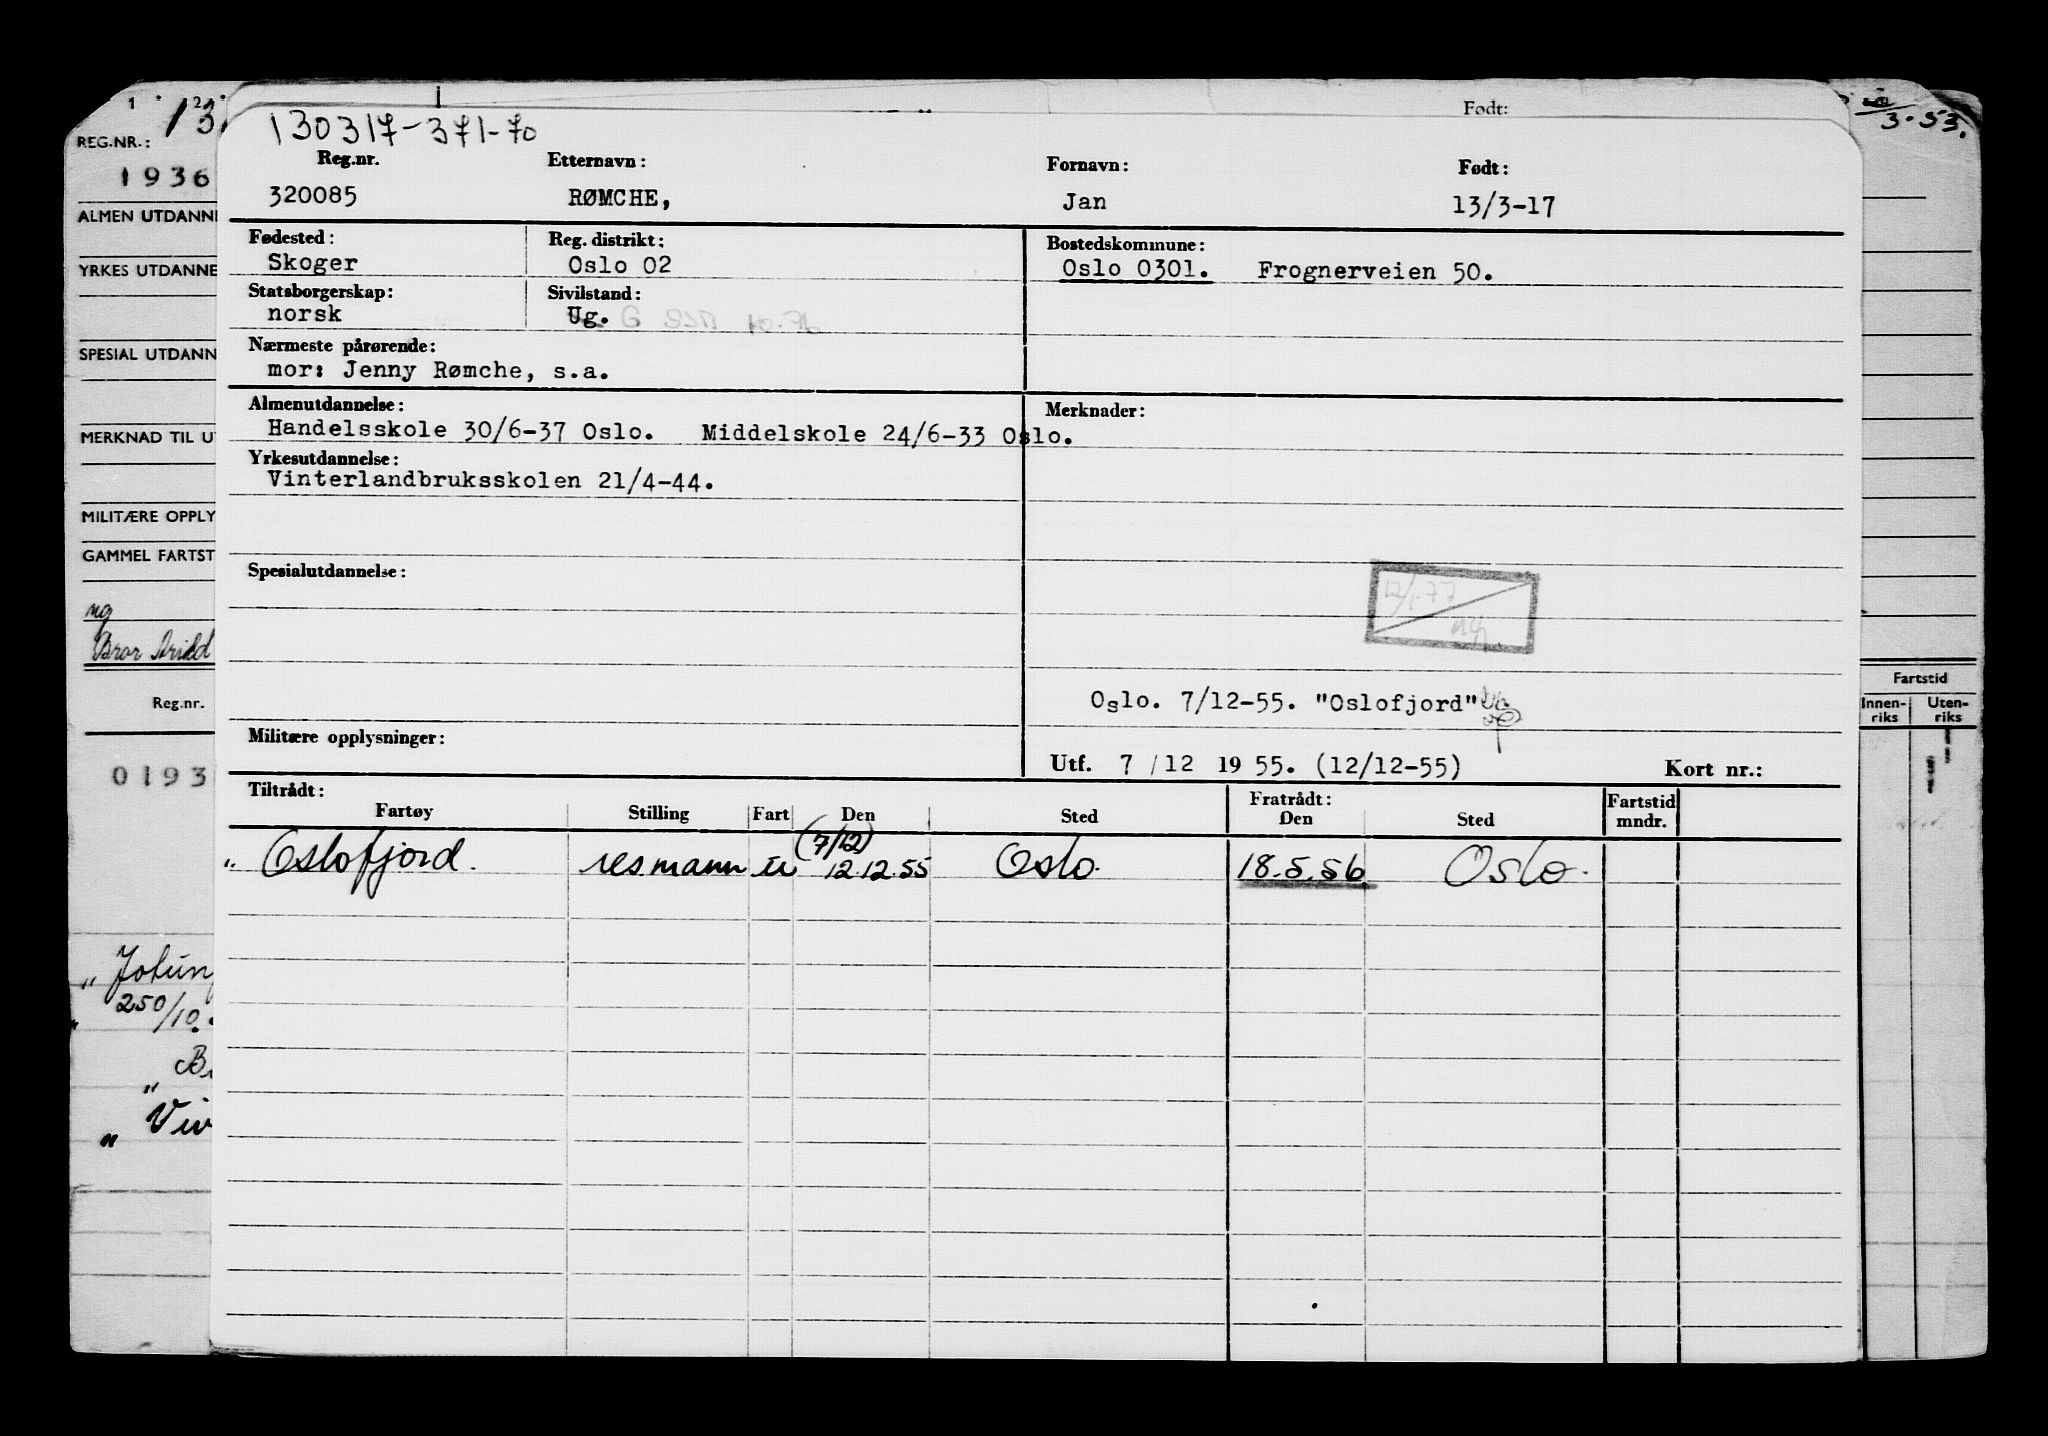 Født:
130317-371-70
Reg.nr. Etternavn: Fornavn: Født:
320085 RØMCHE, Jan 13/3-17
Fødested: Reg. distrikt: Bostedskommune:
Skoger Oslo 02 Oslo 0301. Frognerveien 50.
Statsborgerskap: Sivilstand:
norsk Ug. G
Nærmeste pårørende:
mor: Jenny Rømche, s.a.
Almenutdannelse: Merknader:
Handelsskole 30/6-37 Oslo. Middelskole 24/6-33 Oslo.
Yrkesutdannelse:
Vinterlandbruksskolen 21/4-44.
Spesialutdannelse:
12/1-77
Oslo. 7/12-55. "Oslofjord"
Militære opplysninger:
Utf. 7/12 1955. (12/12-55) Kort nr.:
Tiltrådt: Fratrådt: Fartstid
Fartøy Stilling Fart Den Sted Den Sted mndr.
(7/12)
" Oslofjord. resmann ur 12.12.55 Oslo. 18.5.56 Oslo.
1 2
13
REG.NR.:
1936
ALMEN UTDANNE
YRKES UTDANNE
SPESIAL UTDANN
MERKNAD TIL UT
MILITÆRE OPPLY
GAMMEL FARTST
ng
Bror Arild
Reg.nr.
0193
" Jotun
250/10.
" B
" Viv
3.53.
Fartstid
Innen-riks Uten-riks